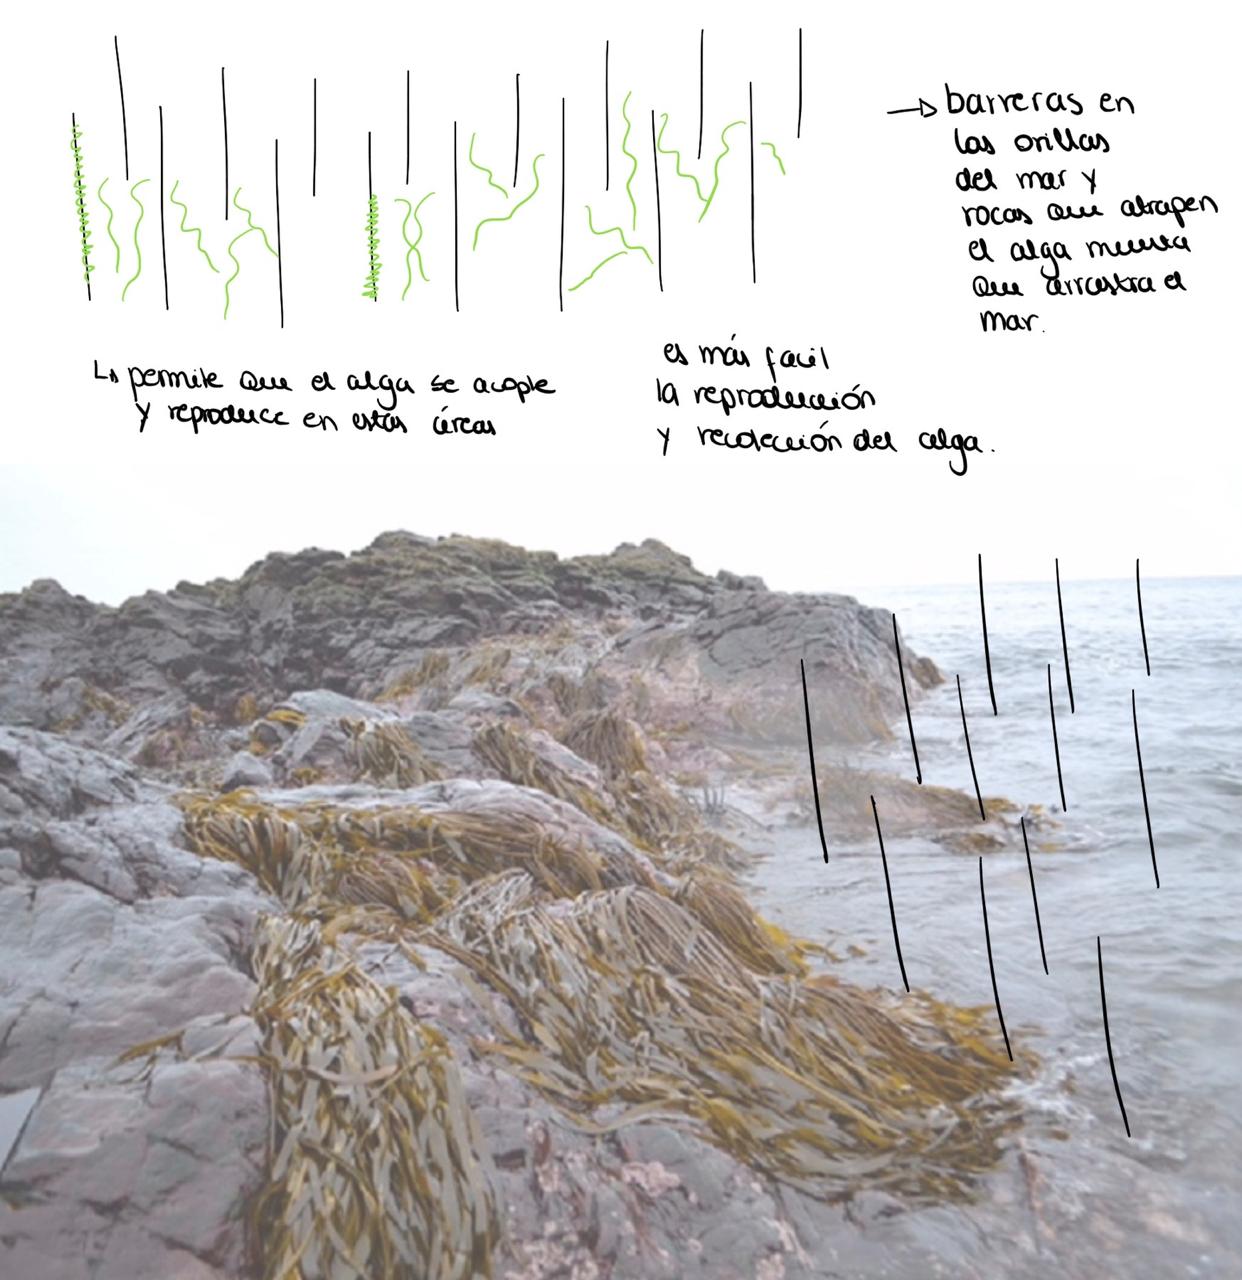 barreras en
las orillas
del mar y
rocas que atrapen
el alga muerta
que arrastra el
mar.
↳ permite que el alga se acople
y reproduce en estas áreas
es más facil
la reproducción
y recolección del alga.